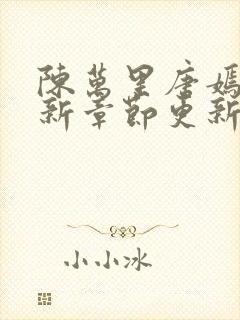 陳萬里唐嫣
新章節更新
小小冰